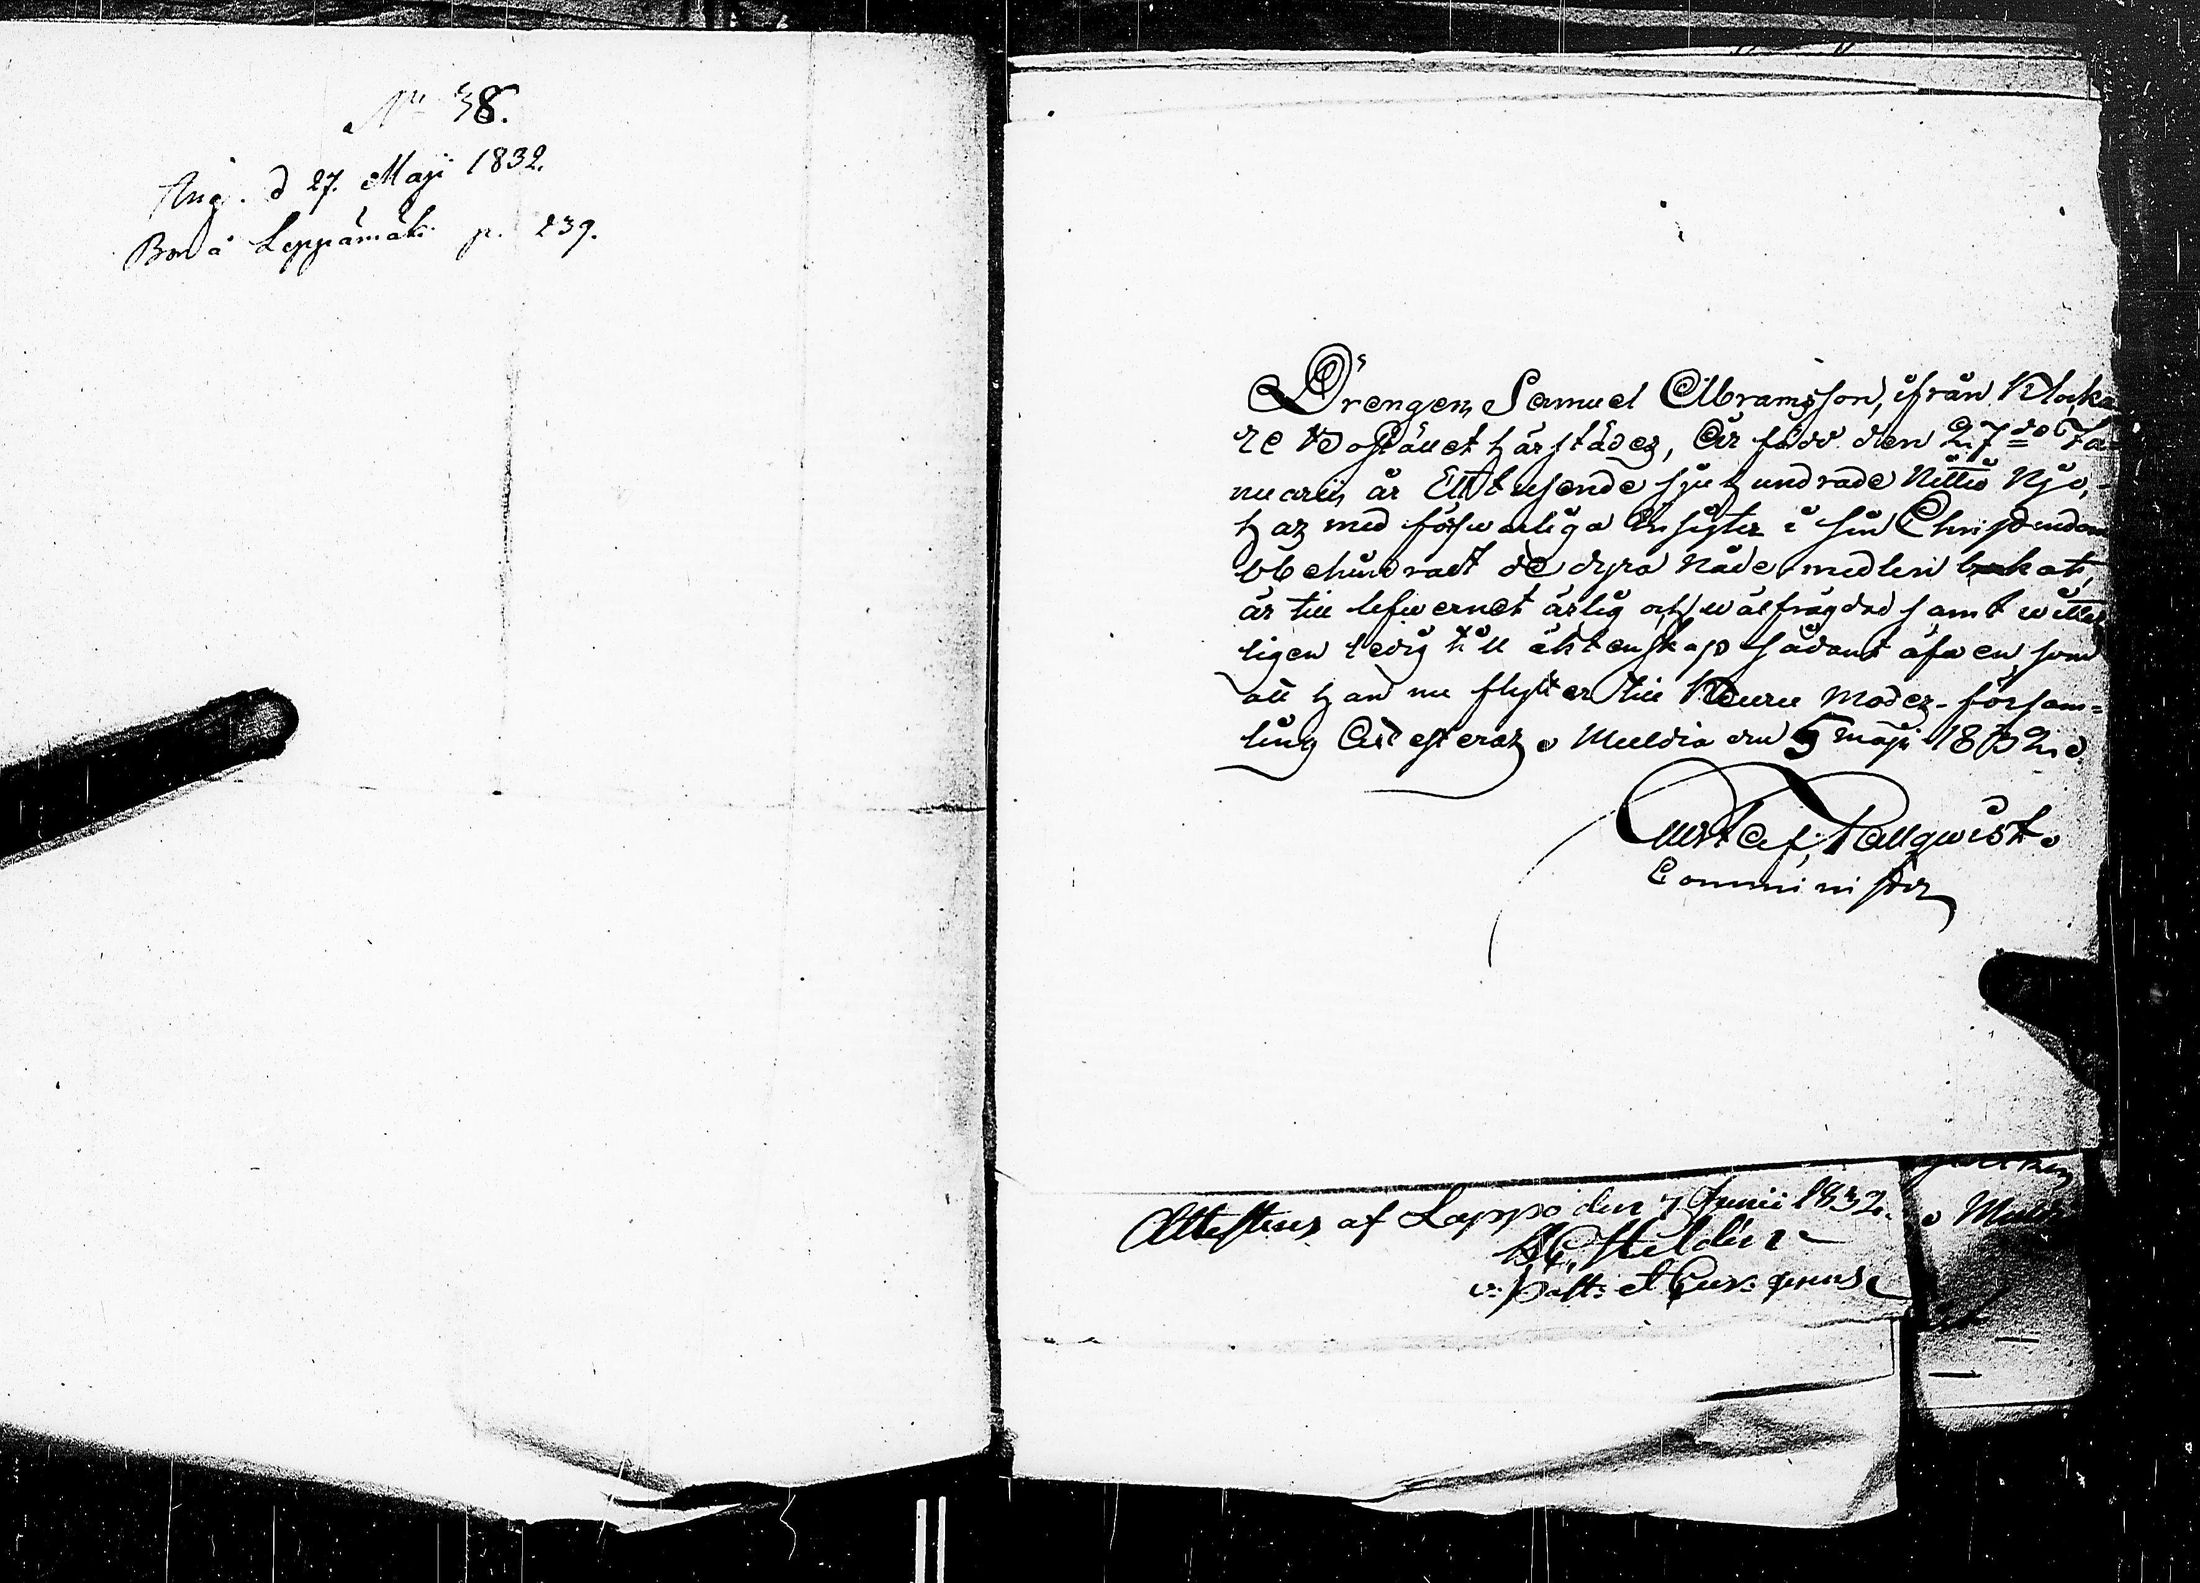 No 38.
Ang. d 27. Maji 1832.
Bor å Leppämäki p. 239.
Drengen Samuel Abramsson, ifrån Klocka
re Bostället härstädes, är född den 27de Ja-
nuarii år Ett tusende sju hundrade Nittio Njo,
har med försvarliga insigter i sin Christendom
obehindradt de dyra Nåde medlen bukat,
är till lefwernet ärlig och wälfrägdad samt witter
ligen ledig till äktenskap sådant äfwen som
att han nu flyttar till Keuru Moder-försam-
ling Attesteras. Muldia den 5 maji 1832.
Gustaf Tallqwist.
Comminister
Attesteras af Lappo den 7 Junii 1832.
v: Past: et Cur:
Muld